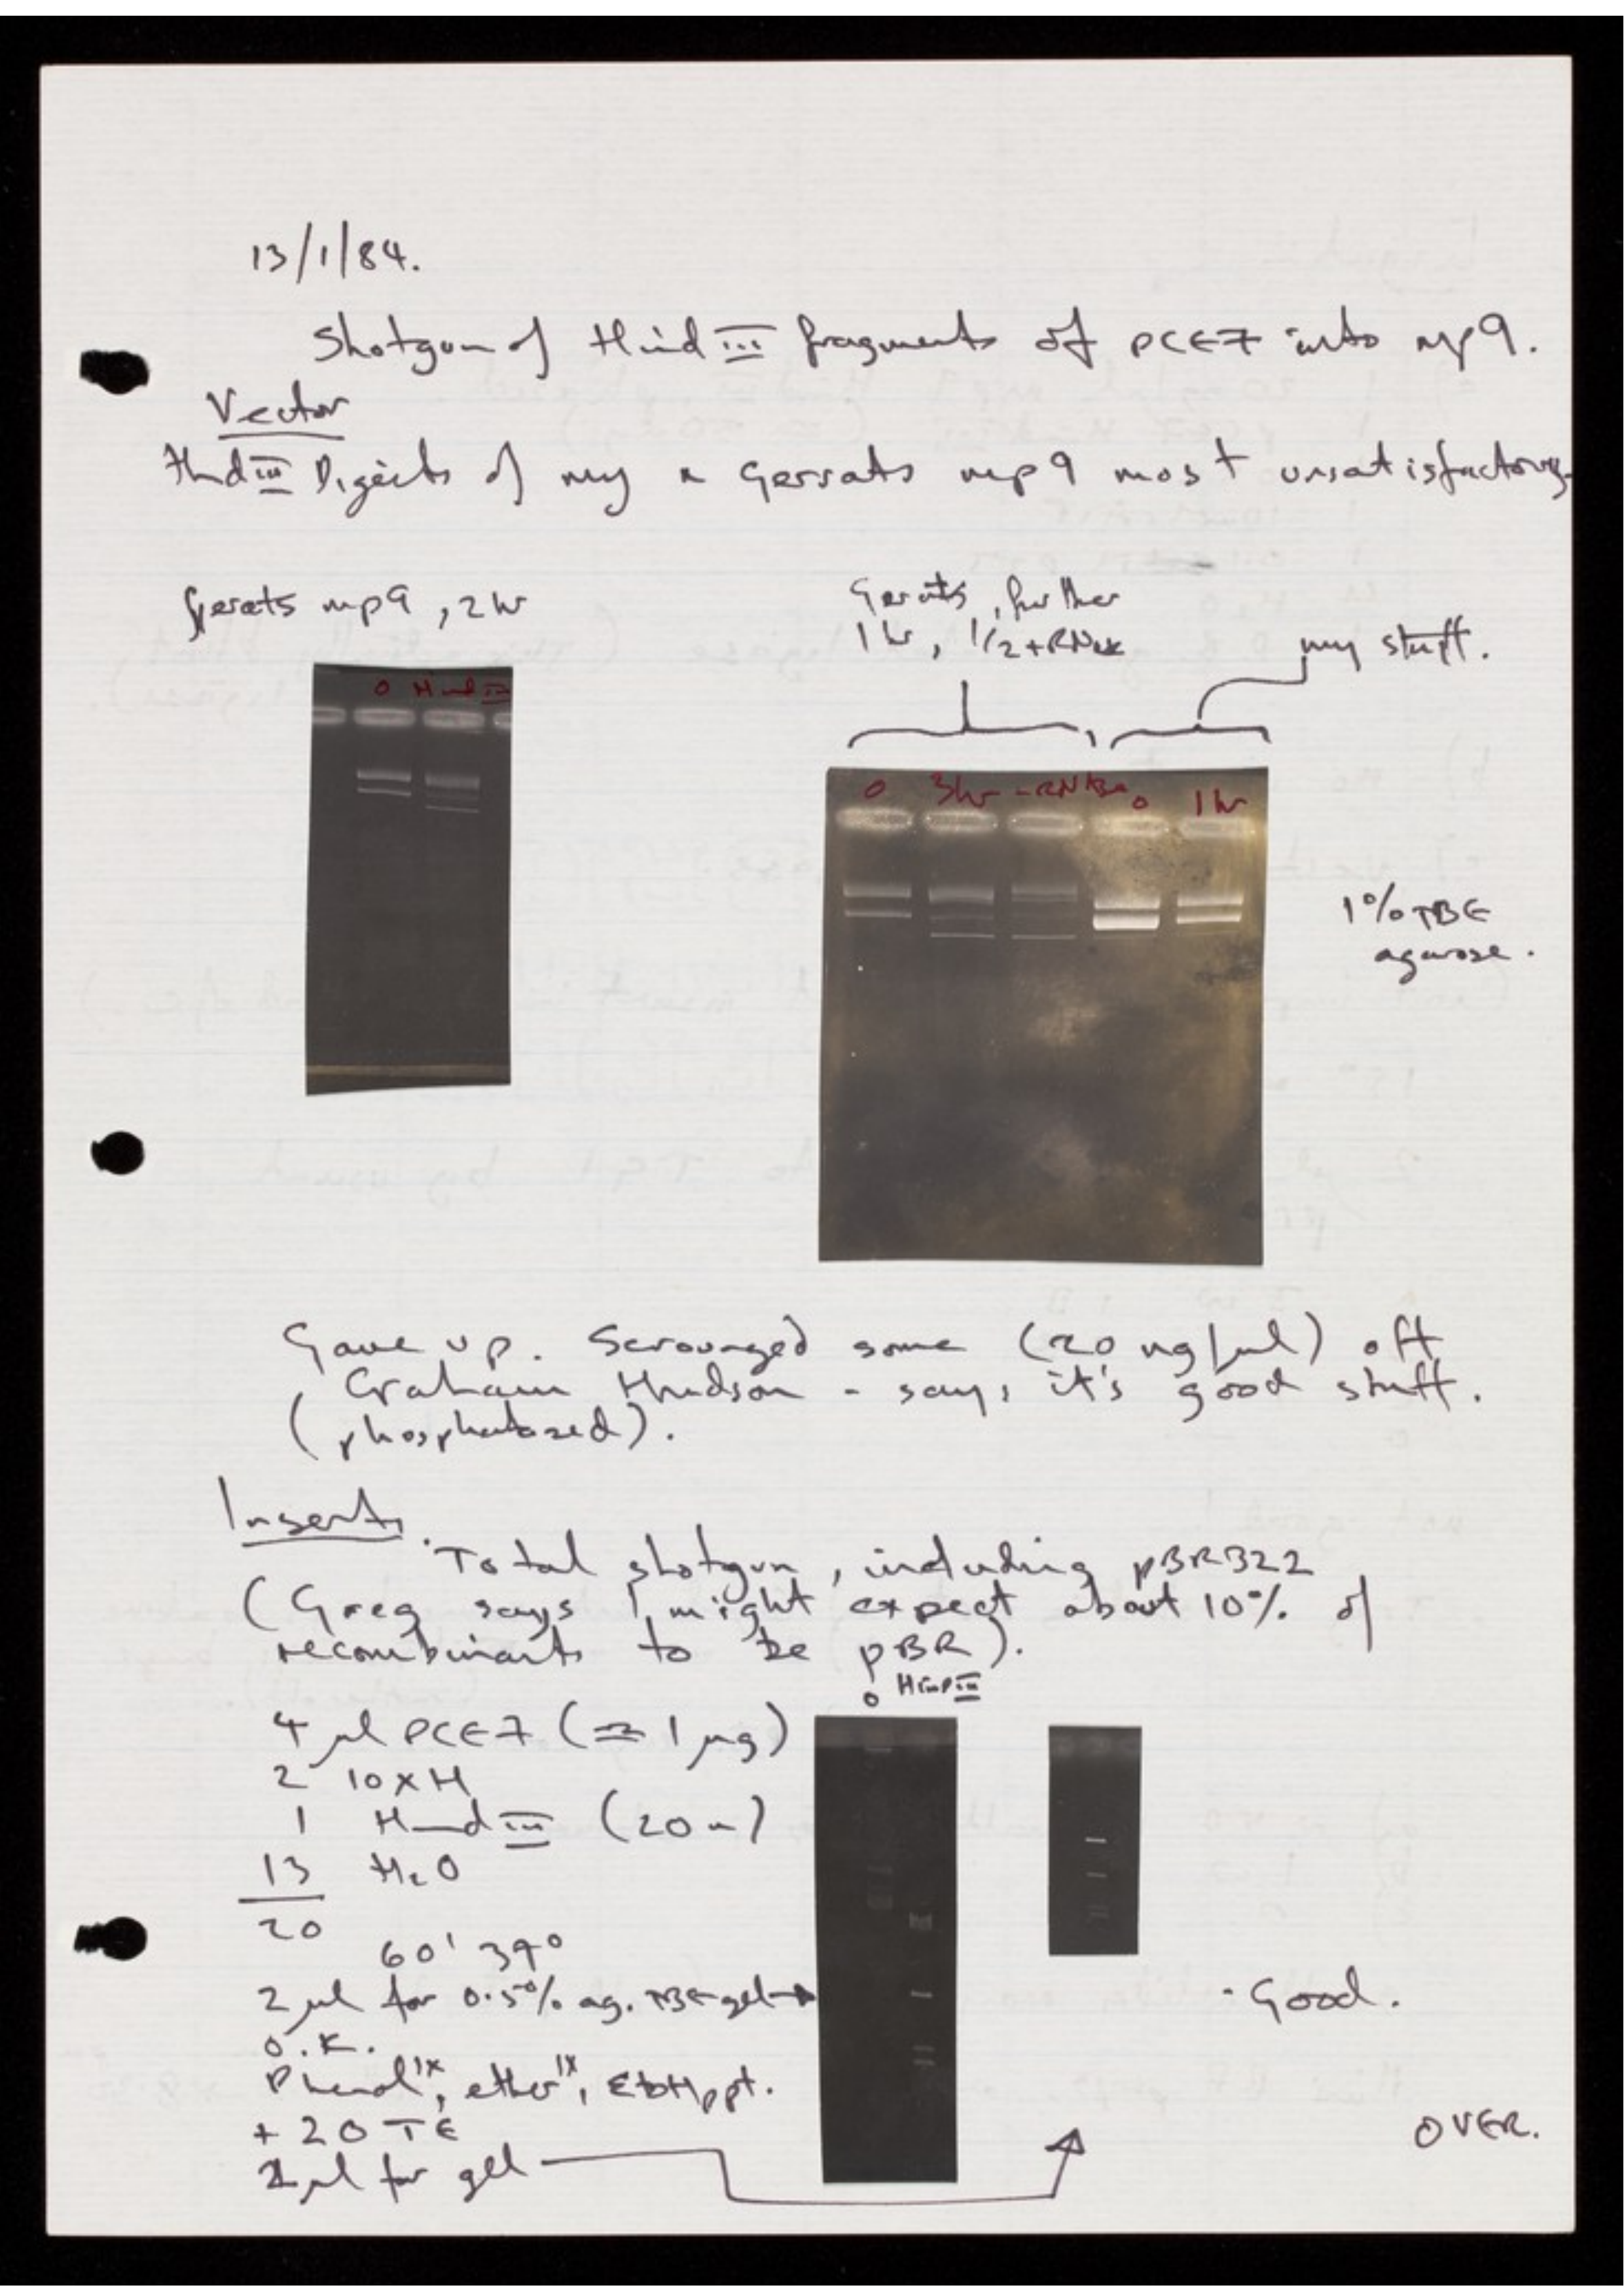 13/1/84.
Shotgun of Hind III fragments of pCE7 into mp9.
Vector
Hind III Digests of my & Gerrats mp9 most unsatisfactory.
Gerats mp9, 2 hr
Gerats, further
1 hr, 1/2 + RNase
my stuff.
0 Hind III
0 3hr -RNAse 0 1 hr
1% TBE
agarose.
Gave up. Scrounged some (20 ng/µl) off
Graham Hudson - says it's good stuff.
(phosphatased).
Inserts.
Total shotgun, including pBR322
(Greg says I might expect about 10% of
recombinants to be pBR).
0 HindIII
4 µl pCE7 (≏ 1 µg)
2 10 x H
1 Hind III (20 u)
13 H2O
20
60' 37°
2 µl for 0.5% ag. TBE gel
O.K.
Phenol 1x, ether 1x, EtOH ppt.
+ 20 TE
µl for gel
- Good.
OVER.